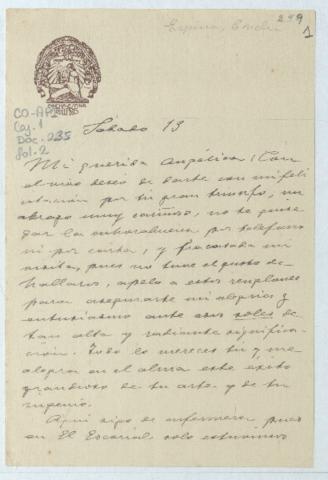 Espina, Concha
249
1
CO-AP2
Caj. 1
Doc. 235
fol. 2
Sábado 13
Mi querida Angélica: Con
el vivo deseo de darte con mi feli
citación por tu gran triunfo, un
abrazo muy cariñoso, no te quise
dar la enhorabuena por teléfono
ni por carta, y fracasada mi
visita, pues no tuve el gusto de
hallaros, apelo a estos renglones
para asegurarte mi alegría y
entusiasmo ante esos roles de
tan alta y radiante significa-
ción. Todo lo mereces tú, y me
alegra en el alma este éxito
grandioso de tu arte y de tu
ingenio.
Aquí sigo de enfermera, pues
en El Escorial, solo estuvimos